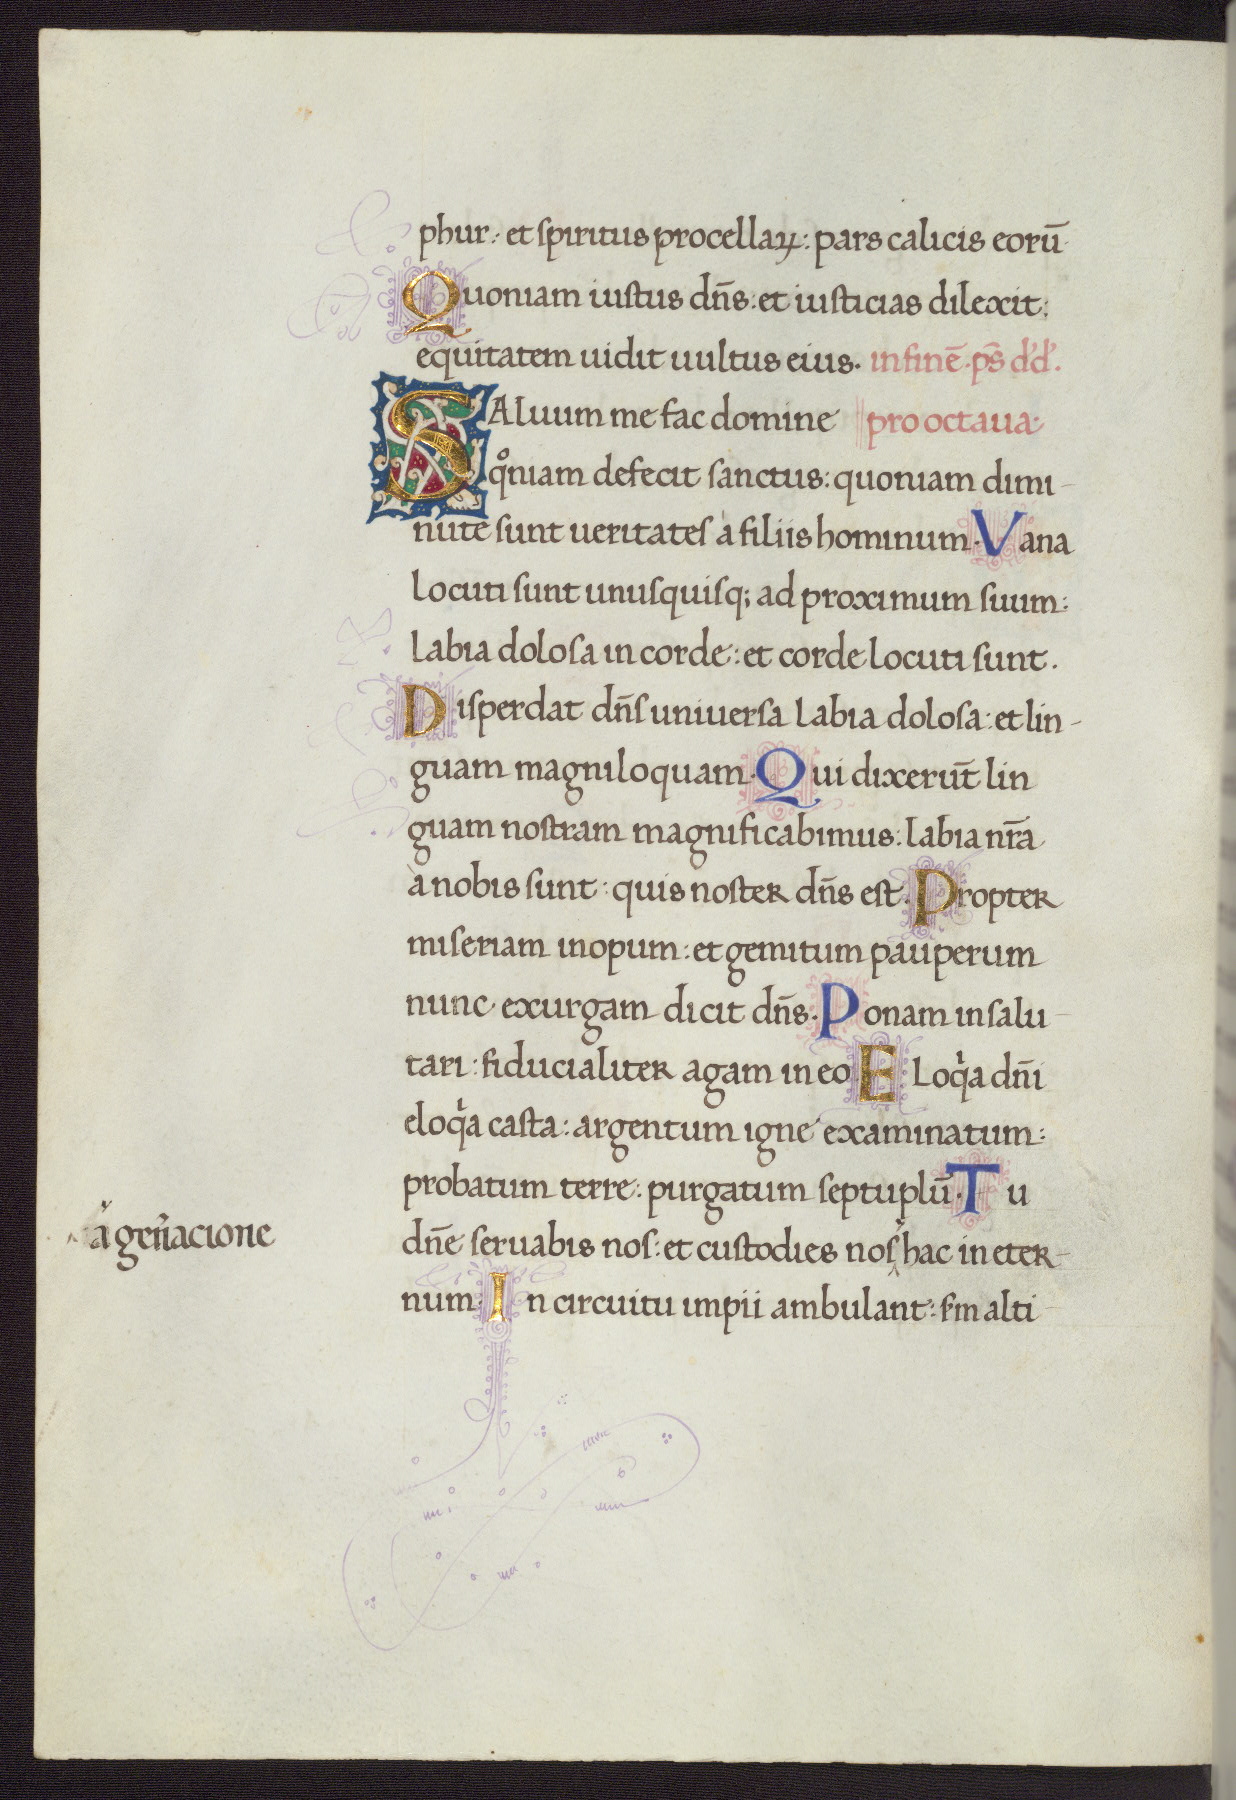 phur: et spiritus procellaꝝ: pars calicis eorū
Quoniam iustus dn̄s: et iusticias dilexit:
equitatem uidit uultus eius. in finē. ps̄ d'd'.
SAluum me fac domine pro octaua
qͦniam defecit sanctus: quoniam dimi-
nute sunt ueritates à filiis hominum. Vana
locuti sunt unusquisq; ad proximum suum:
labia dolosa in corde: et corde locuti sunt.
Disperdat dn̄s uniuersa labia dolosa: et lin-
guam magniloquam. Qui dixerūt lin
guam nostram magnificabimus: labia nr̄a
à nobis sunt: quis noster dn̄s est. Propter
miseriam inopum: et gemitum pauperum
nunc exurgam dicit dn̄s. Ponam in salu-
tari: fiducialiter agam in eo ELoqͥa dn̄i
eloqͥa casta: argentum igne examinatum:
probatum terre: purgatum septuplū. Tu
dn̄e seruabis nos: et custodies nos hac in eter-
à gen̄acione
num. In circuitu impii ambulant: sm̄ alti